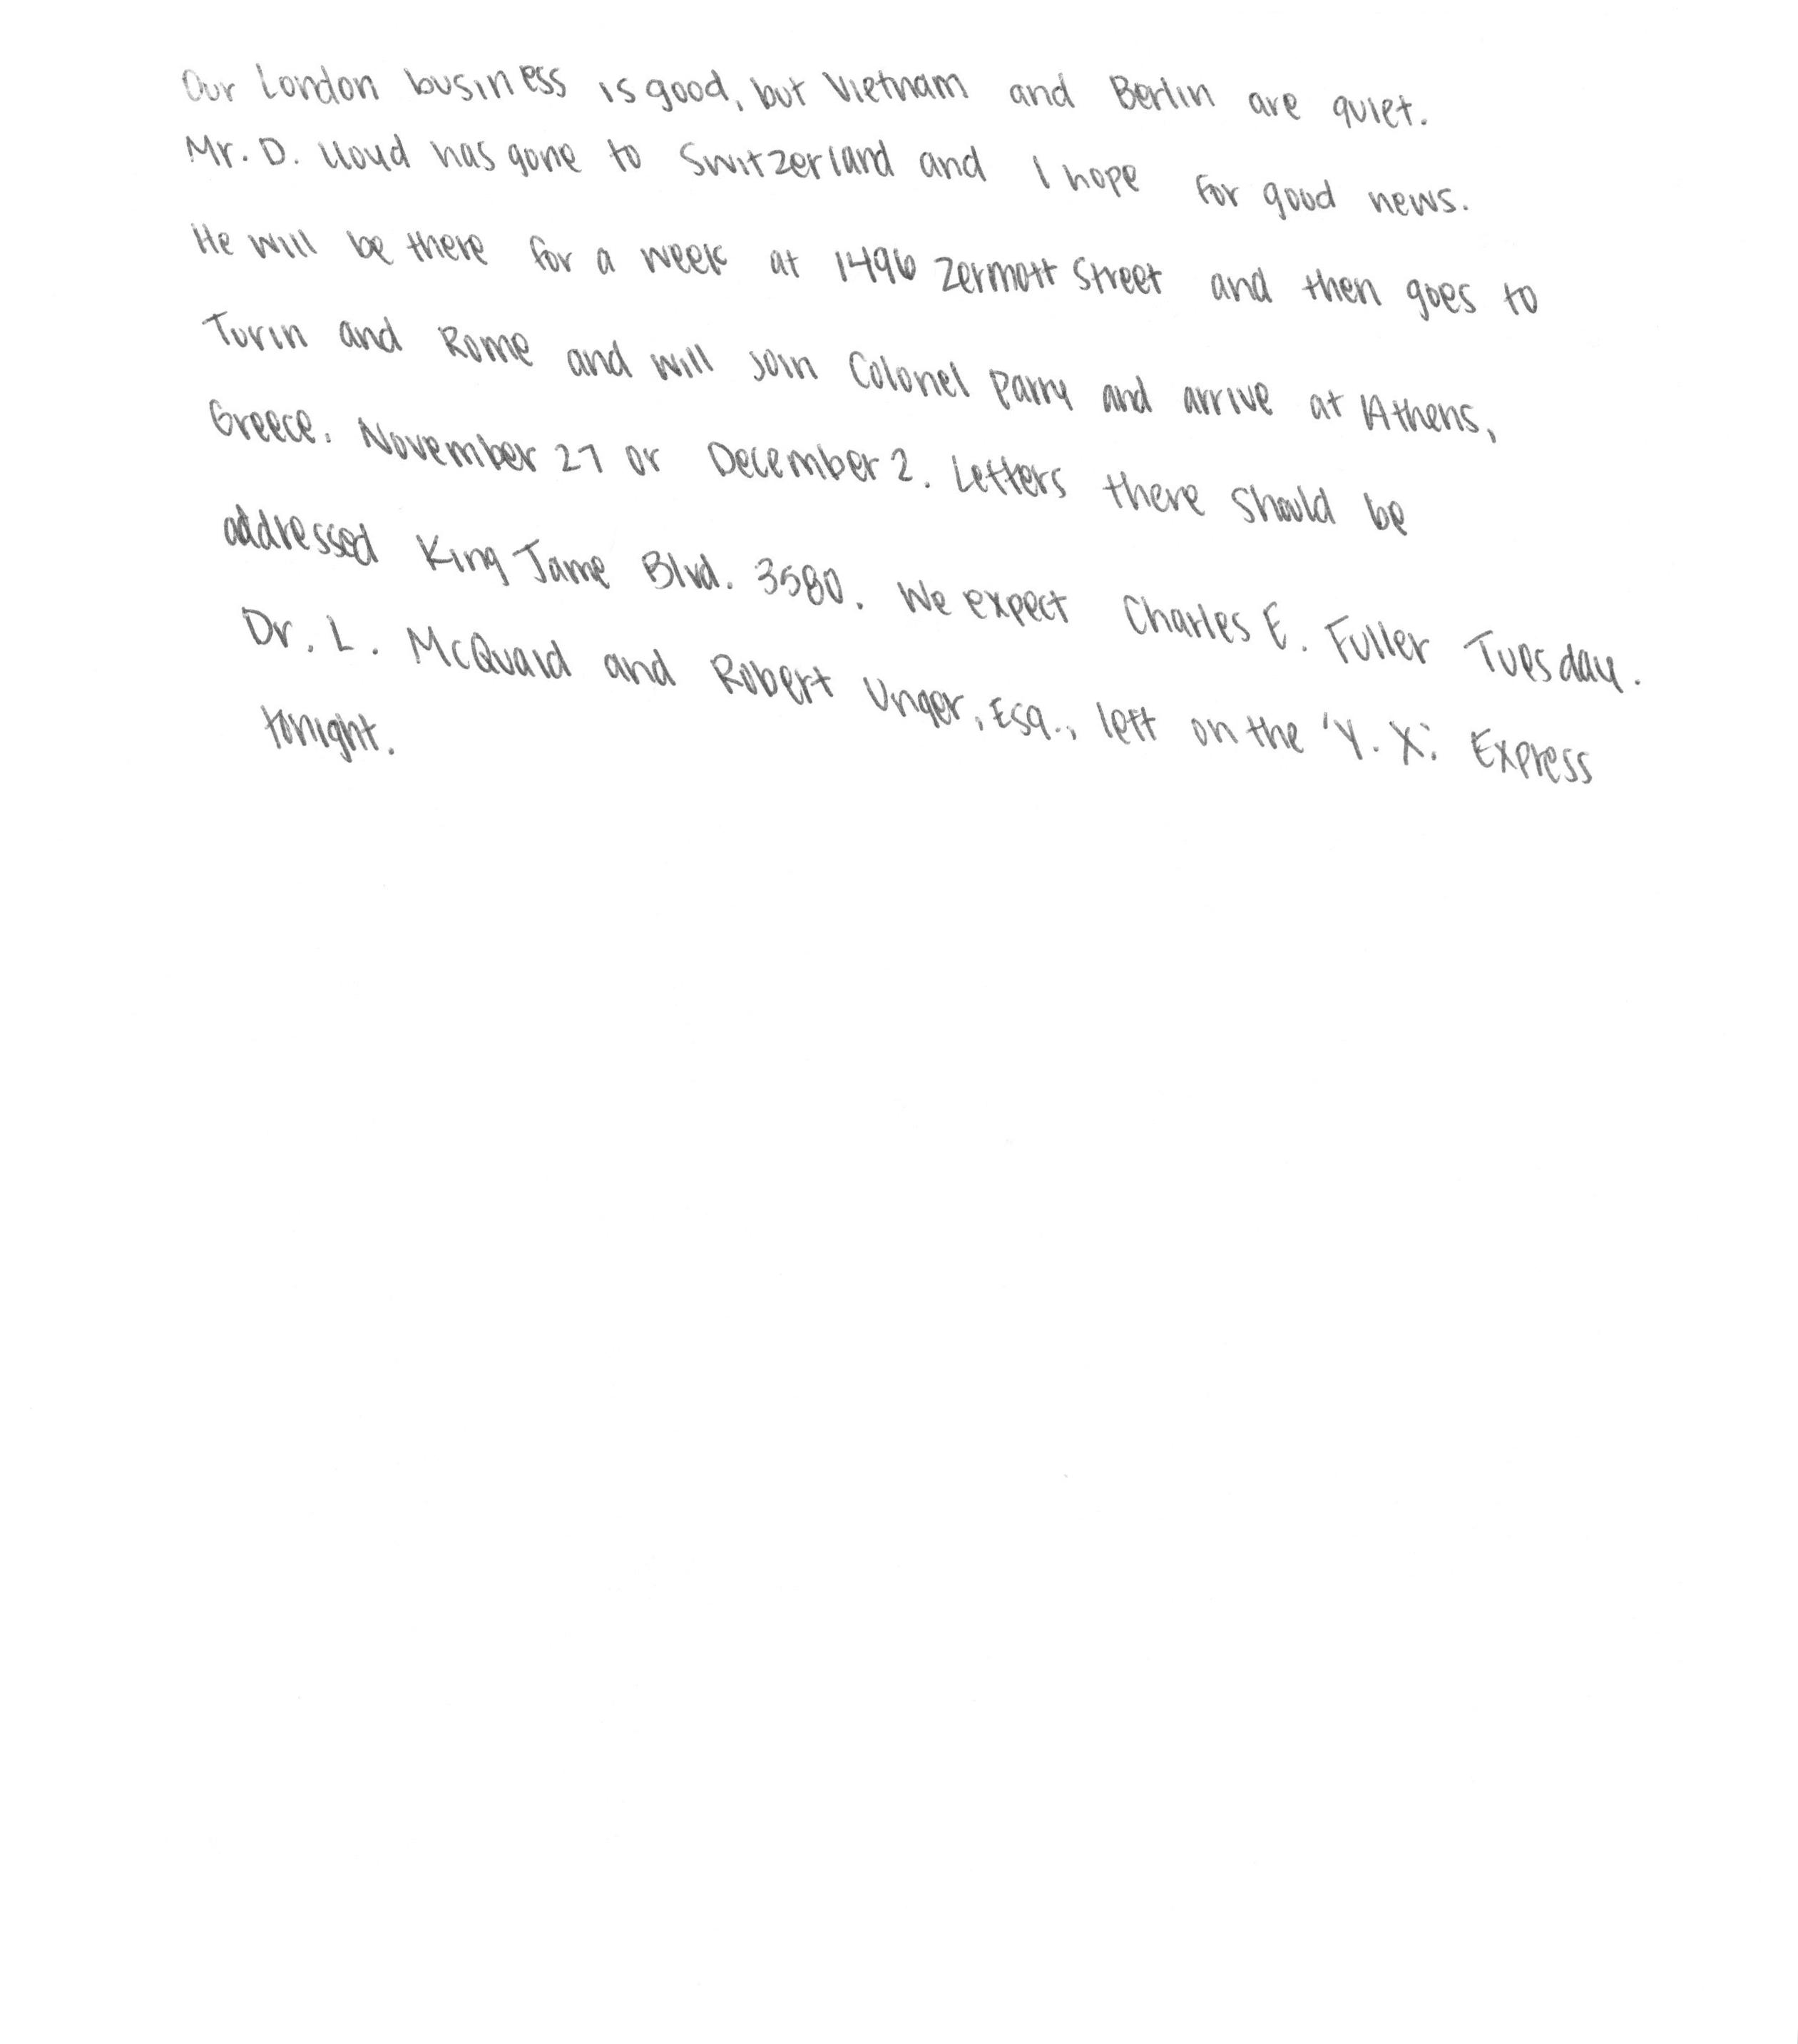 Our London business is good, but Vietnam and Berlin are quiet.
Mr. D. Lloyd has gone to Switzerland and I hope for good news.
He will be there for a week at 1496 Zermott Street and then goes to
Turin and Rome and will join Colonel Parry and arrive at Athens,
Greece. November 27 or December 2. Letters there should be
addressed King Jame Blvd. 3580. We expect Charles E. Fuller Tuesday.
Dr. L. McQuaid and Robert Unger, Esq., left on the 'Y. X.' Express
tonight.